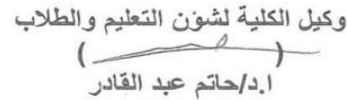 وكيل الكلية لشؤن التعليم والطلاب
( )
ا.د/حاتم عبد القادر